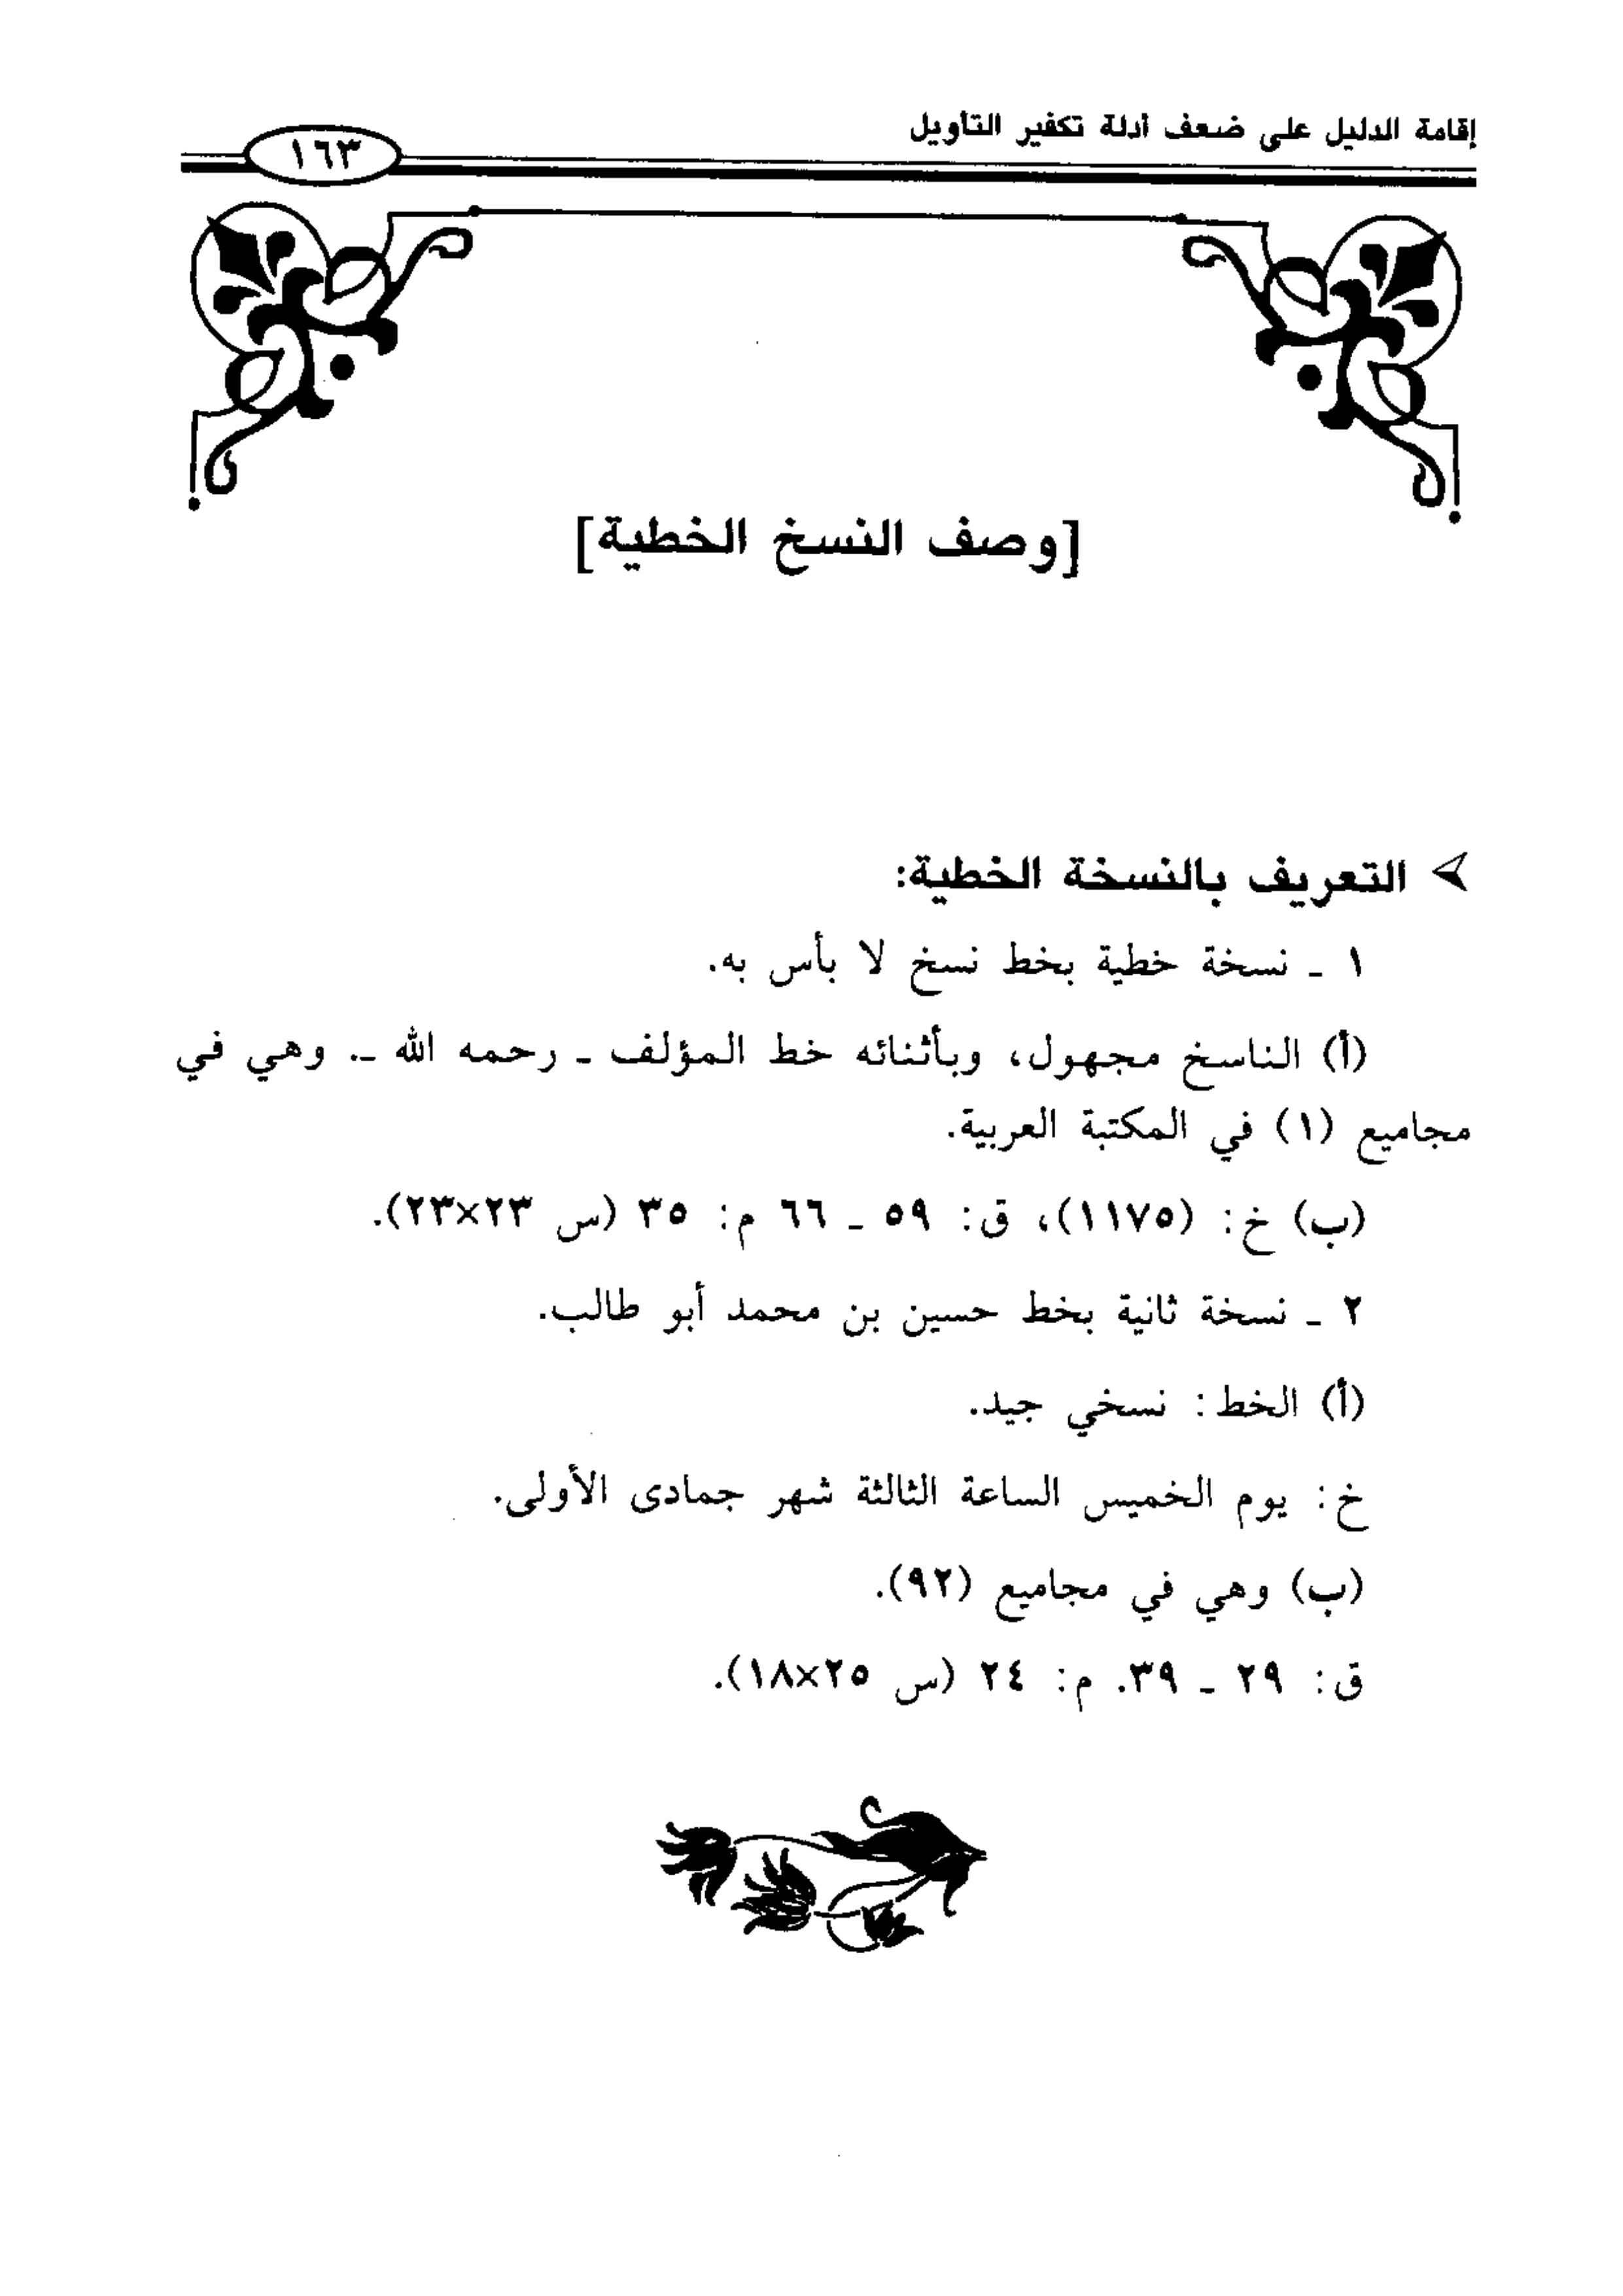 إقامة الدليل على ضعف أدلة تكفير التأويل
١٦٣
[وصف النسخ الخطية]
التعريف بالنسخة الخطية:
١ ـ نسخة خطية بخط نسخ لا بأس به.
(أ) الناسخ مجهول، وبأثنائه خط المؤلف ـ رحمه الله ـ. وهي في
مجاميع (١) في المكتبة العربية.
(ب) خ: (١١٧٥)، ق: ٥٩ ـ ٦٦ م: ٣٥ (س ٢٣×٢٣).
٢ ـ نسخة ثانية بخط حسين بن محمد أبو طالب.
(أ) الخط: نسخي جيد.
خ: يوم الخميس الساعة الثالثة شهر جمادى الأولى.
(ب) وهي في مجاميع (٩٢).
ق: ٢٩ ـ ٣٩. م: ٢٤ (س ٢٥×١٨).